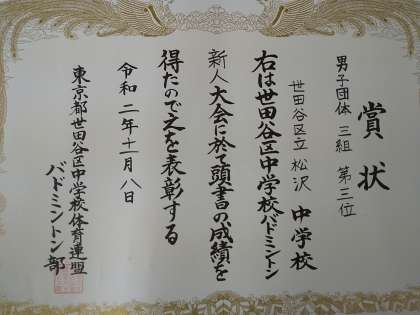 賞状
男子団体 三組 第三位
世田谷区立 松沢 中学校
右は世田谷区中学校バドミントン
新人大会に於て頭書の成績を
得たので之を表彰する
令和二年十一月八日
東京都世田谷区中学校体育連盟
バドミントン部